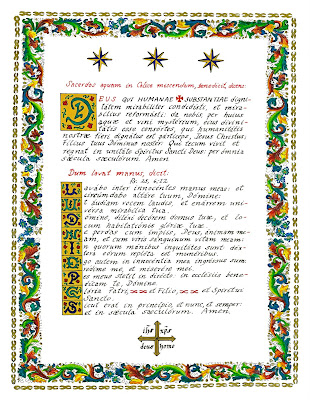 Sacerdos aquam in Calice miscendam, benedicit, dicens:
DEUS QUI HUMANAE ✠ SUBSTANTIAE digni-
tatem mirabiliter condidisti, et mira-
bilius reformasti: da nobis per huius
aquæ et vini mysterium, eius divini-
tatis esse consortes, qui humanitatis
nostræ fieri dignatus est particeps, Jesus Christus,
Filius tuus Dominus noster: Qui tecum vivit et
regnat in unitate Spiritus Sancti Deus: per omnia
sæcula sæculorum. Amen.
Dum lavat manus, dicit:
Ps. 25, 6-12
Lavabo inter innocentes manus meas: et
circumdabo altare tuum, Domine:
Ut audiam vocem laudis, et enarrem uni-
versa mirabilia tua.
Domine, dilexi decorem domus tuæ, et lo-
cum habitationis gloriæ tuæ.
Ne perdas cum impiis, Deus, animam me-
am, et cum viris sanguinum vitam meam:
In quorum manibus iniquitates sunt: dex-
tera eorum repleta est muneribus.
Ego autem in innocentia mea ingressus sum:
redime me, et miserere mei.
Pes meus stetit in directo: in ecclesiis bene-
dicam te, Domine.
Gloria Patri, et Filio, et Spiritui
Sancto.
Sicut erat in principio, et nunc, et semper:
et in sæcula sæculorum. Amen.
ihs xps
deus homo